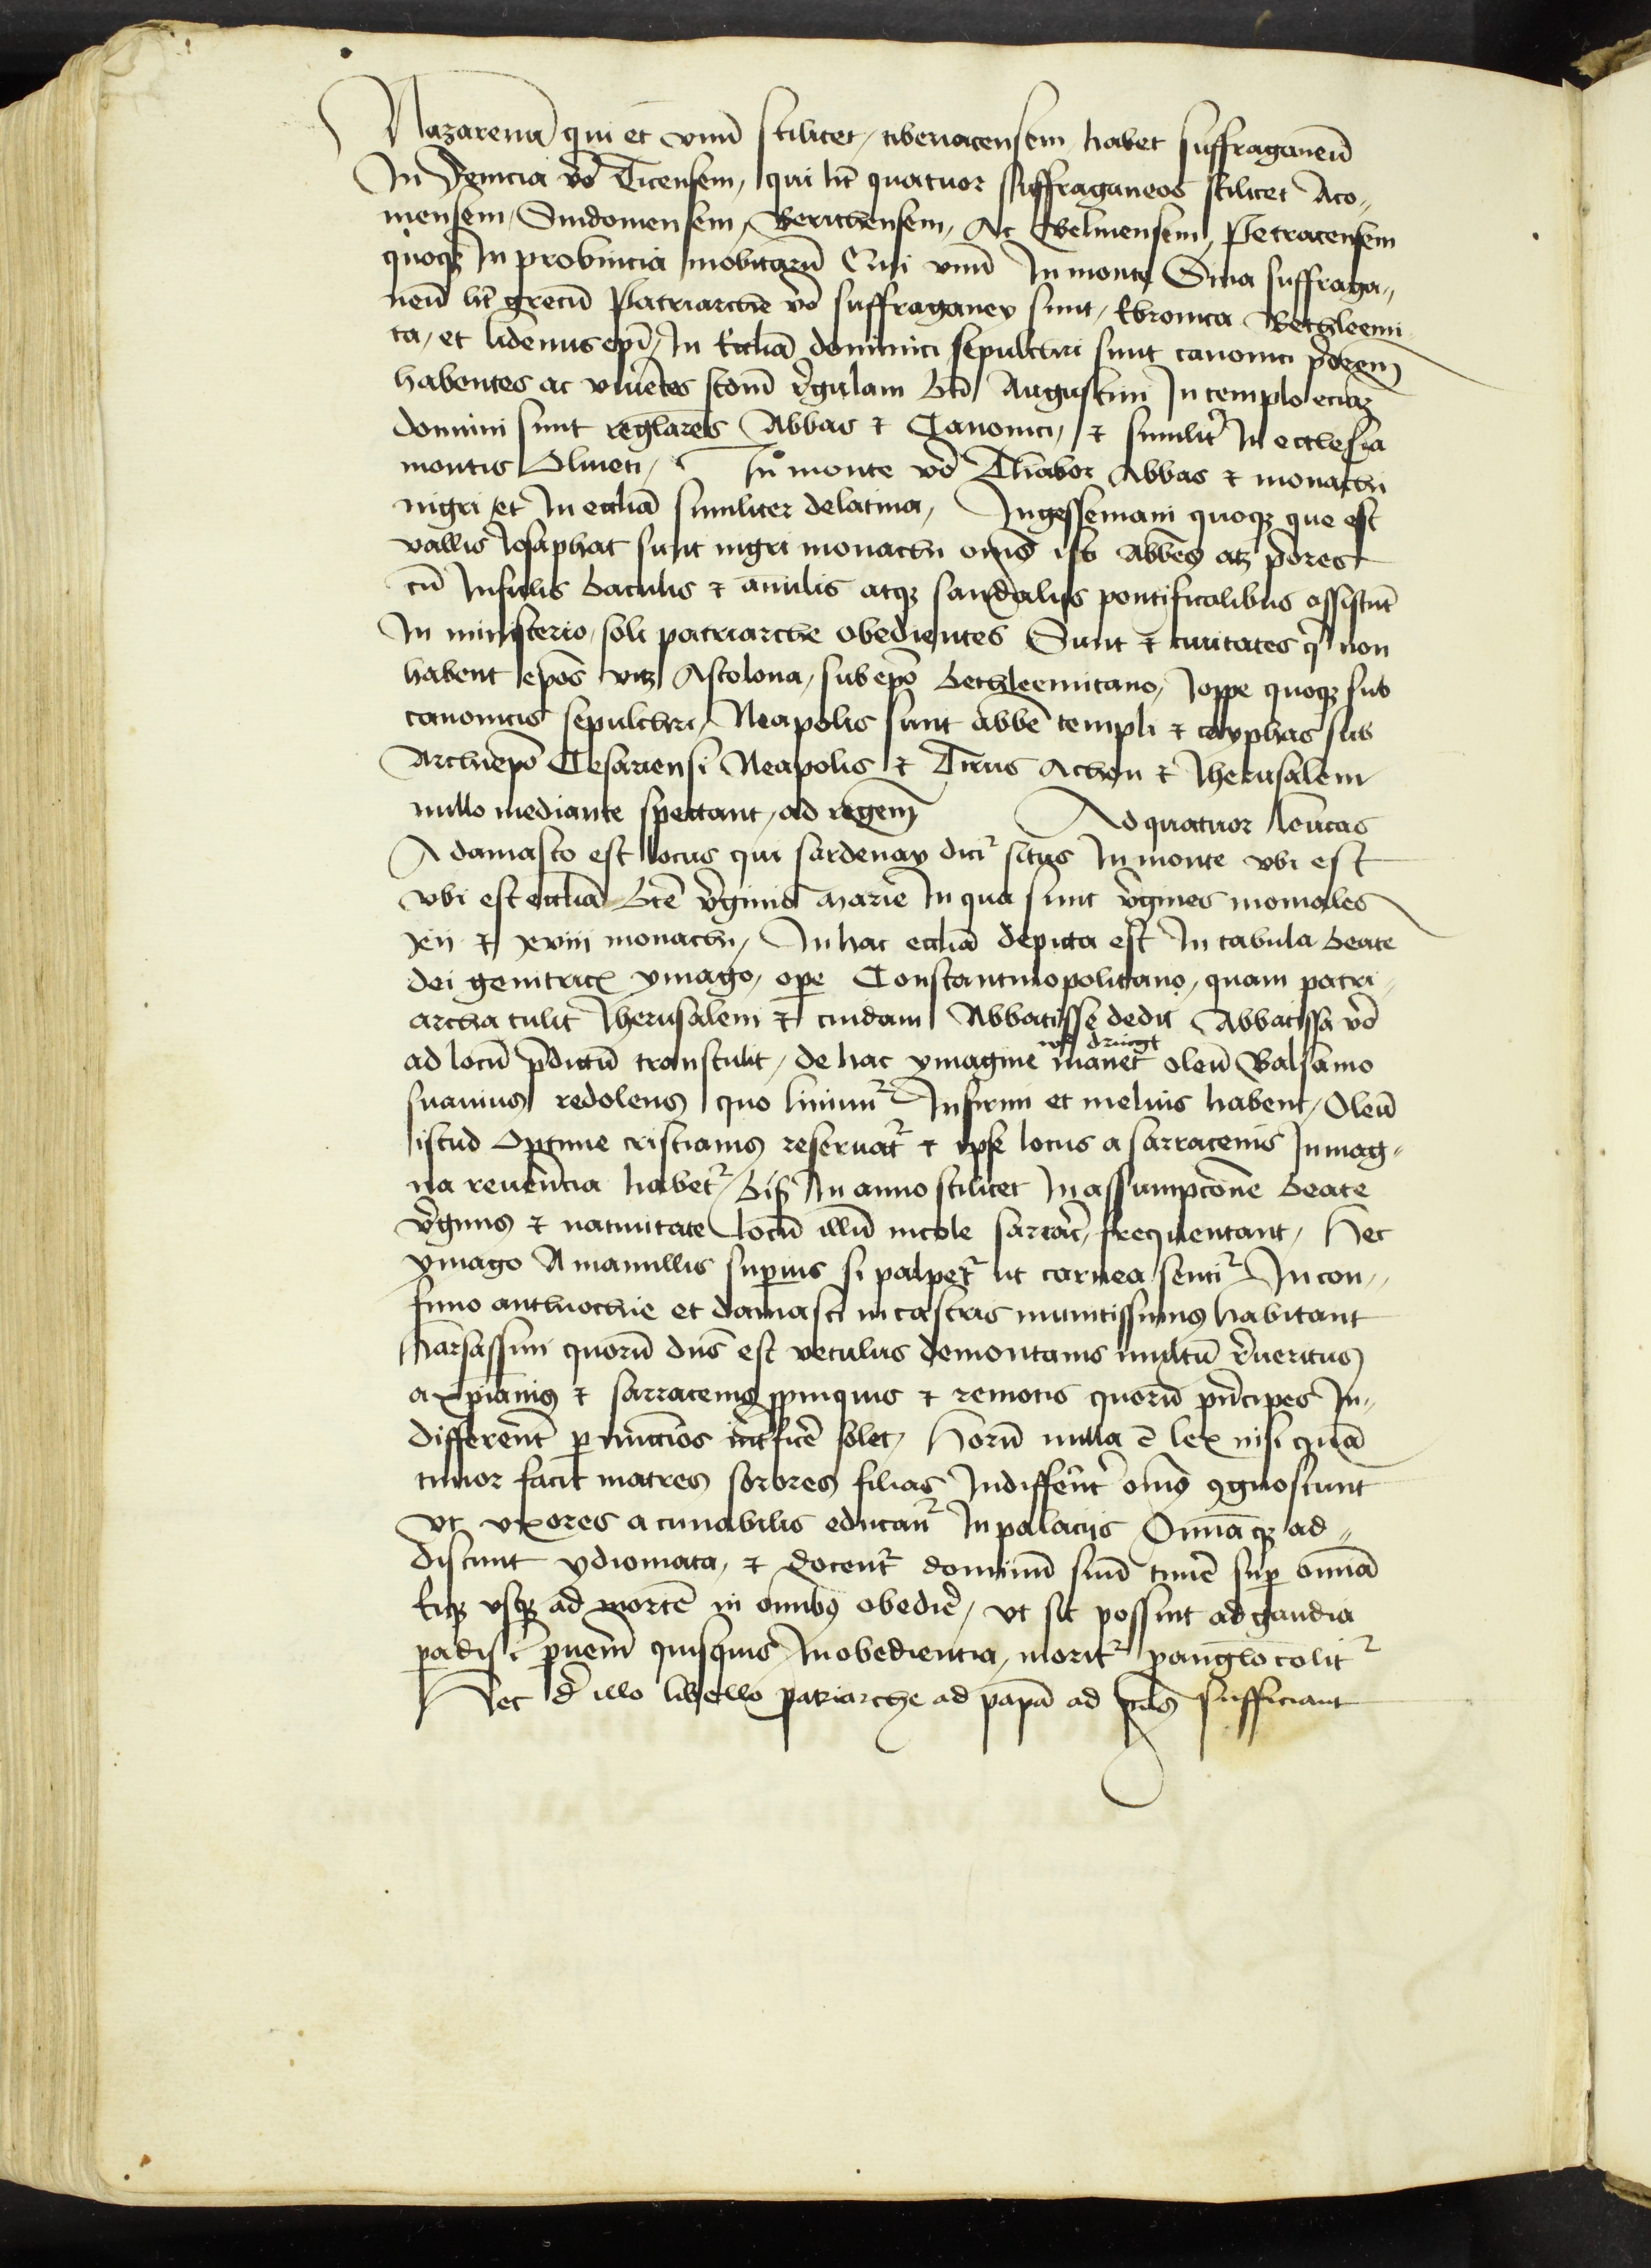 Nazarenū qui et vnū scilicet / tiberiacensem habet suffraganeū
In Fenicia v̄o Ticensem, qui ht̄ quatuor suffraganeos scilicet Aco„
nensem / Sindonensem / Berithensem / Ac Belinensem / Petracensem
quoqꝫ In prouincia mobitarū Cui vnū In monte Sina suffraga„
neū ht̄ grecū Patriarche v̄o suffraganey sunt / Ebronita Bethleemi
ta / et lidensis ep̄i / In Ecclīa dominici sepulchri sunt canonici p̄orem
habentes ac viuētes scdm̄ r̄gulam Bt̄i Augustini In templo eciaꝫ
domini sunt reglāres Abbas ⁊ Canonici / ⁊ similit̄ In ecclesia
montis Oliueti / In monte v̄o Thabor Abbas ⁊ monachi
nigri / et In ecclīa similiter delatina / Ingessemani quoqꝫ que est
vallis Josaphat sunt nigri monachi om̄s isti Abbes̄ atqꝫ p̄ores
cū Infulis Baculis ⁊ an̄ulis atqꝫ sandalijs pontificalibus assistūt
In ministerio / soli patriarche obedientes Sunt ⁊ ciuitates q̄ non
habent ep̄os vtꝫ Ascolona / sub ep̄o Bethleemitano / Joppe quoqꝫ sub
canonicis sepulchri / Neapolis sunt abbē templi ⁊ cayphas sub
Archiep̄o Cesariensi Neapolis ⁊ Tirus Achon ⁊ Jherusalem
nullo mediante spectant / ad regem Ad quatuor leucas
A damasco est locus qui sardenay dicit᷑ situs In monte vbi est
vbi est ecclīa Bt̄e v̄ginis Marie In qua sunt v̄gines moniales
xij ⁊ xviij monachi / In hac ecclīa depicta est In tabula Beate
dei genitricꝭ ymago / ope Constantinopolitano / quam patri„
archa tulit Jherusalem ⁊ cuidam Abbatisse dedit Abbatissa v̄o
ad locū p̄dictū transtulit / de hac ymagine manet oleū Balsamo
suauius redolens quo liniunt᷑ Infirmi et melius habent / Oleū
istud Optime cristianis reseruat᷑ ⁊ ipse locus a sarracenis Inmag„
na reuer̄ncia habet᷑ / Bis In anno scilicet In assumpcōne Beate
v̄ginis ⁊ natiuitate locū illū incole sarrac̄ / frequentant / Hec
ymago A mamillis supius si palpet᷑ ut carnea sentit᷑ In con„
finio anthiochie et damasci in castris munitissimis habitant
Harsassini quorū dn̄s est vetulus demontanis multū r̄ueritus
a xp̄ianis ⁊ sarracenis ꝓpinquis ⁊ remotis quorū pn̄cipes In„
differēnt̄ p nunccios int̄ficē solet / Horū nulla ē lex nisi quā
timor facit matres sorores filias Indiffer̄nt̄ om̄s ꝯgnoscunt
vt vxores a cunabulis educant᷑ In palacijs Om̄iaqꝫ ad„
discunt ydiomata / ⁊ docent᷑ dominū suū timē sup omīa
Eiqꝫ vsqꝫ ad mortē in omībꝫ obedir̄ / vt sic possint ad gaudia
padisi puenir̄ quisquis Inobedientia / morit᷑ p angl̄o colit᷑
Hec d̄ illo libello patriarche ad papā ad p̄ns sufficiant